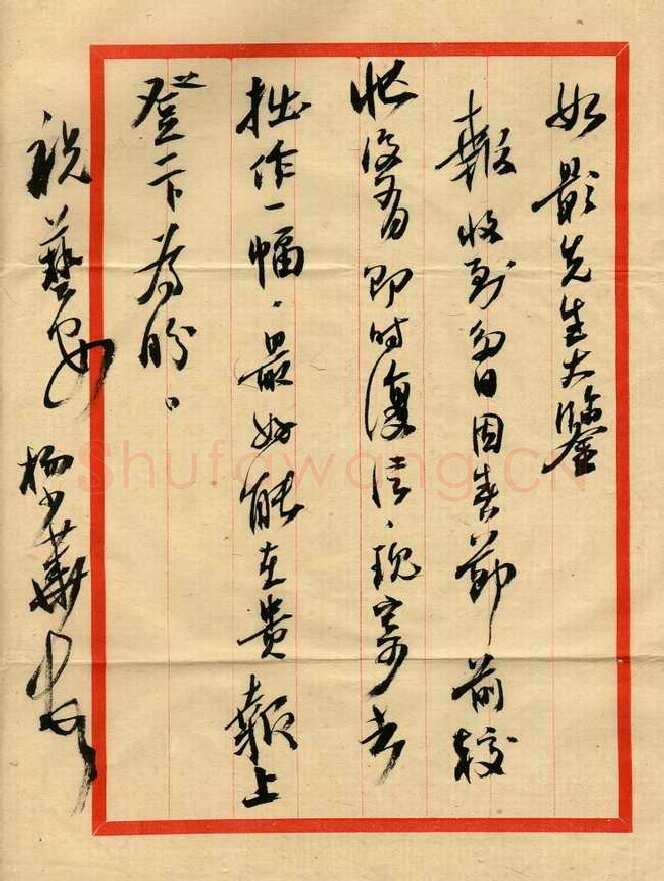 如影先生大鑒
報收到多日因春節前較
忙沒有即時復信、現寄去
拙作一幅、最好能在貴報上
登一下為盼。
祝藝安 楊 華
ShufaWang.CN